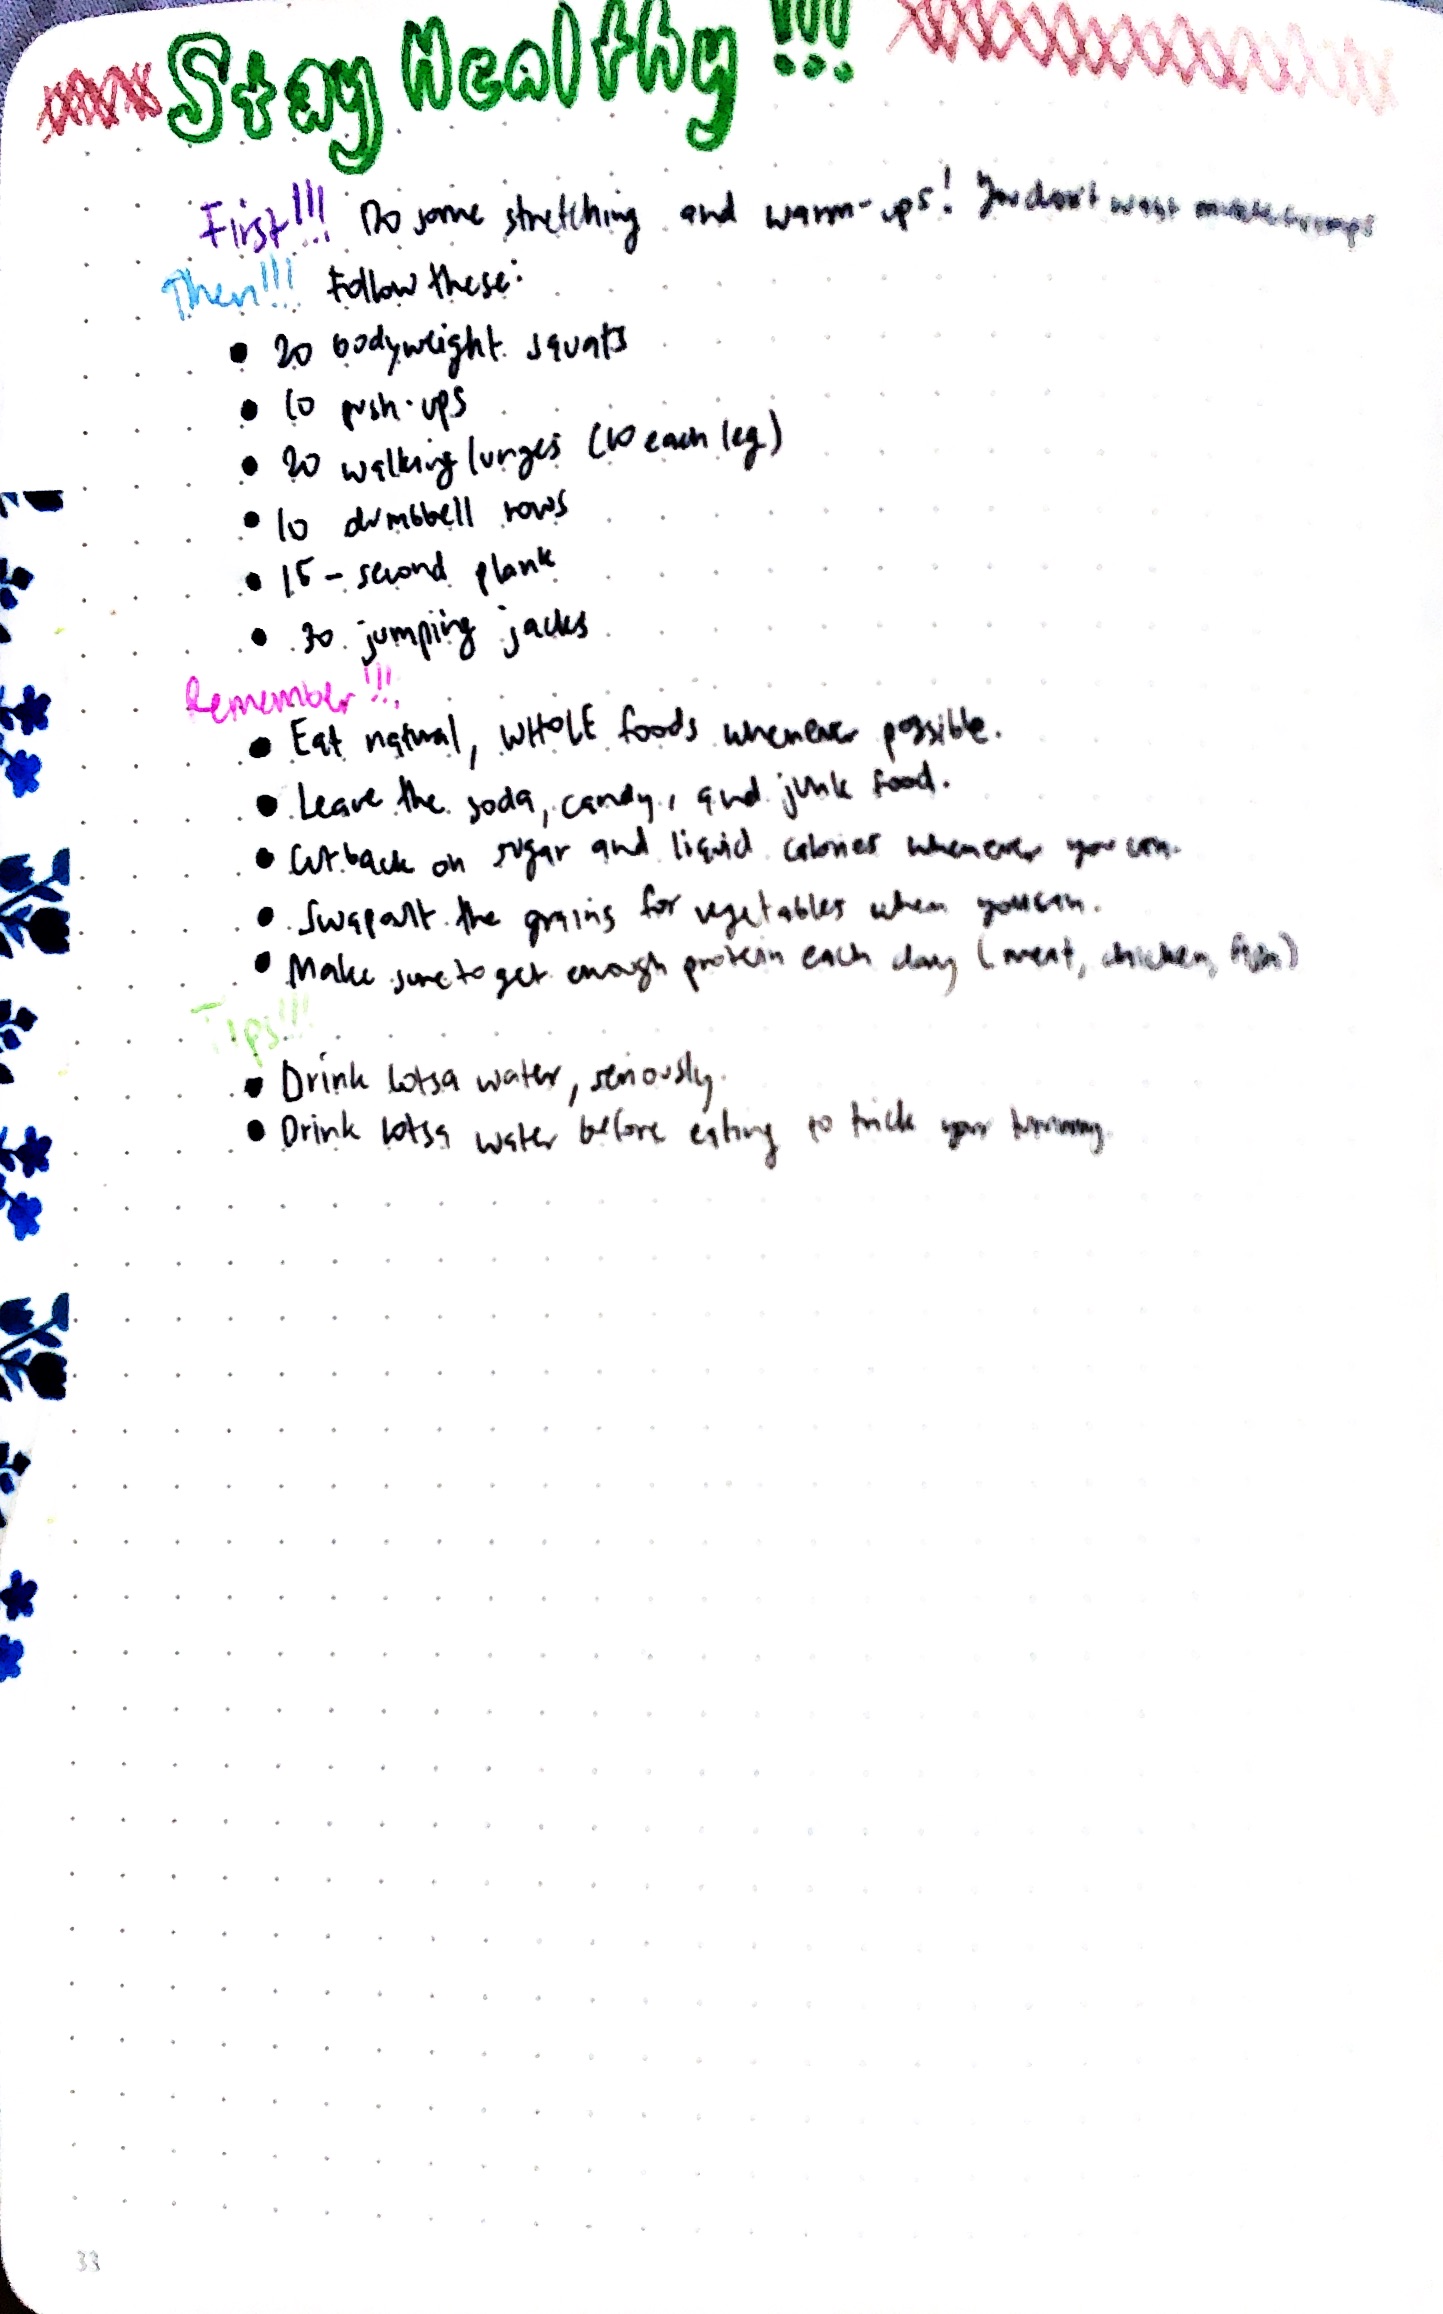 Stay Healthy !!!
First!!! Do some stretching and warm-ups! You don't want muscle cramps
Then!!! Follow these:
• 20 bodyweight squats
• 10 push-ups
• 20 walking lunges (10 each leg)
• 10 dumbbell rows
• 15-second plank
• 30 jumping jacks
Remember!!!
• Eat natural, WHOLE foods whenever possible.
• Leave the soda, candy, and junk food.
• Cut back on sugar and liquid calories whenever you can.
• Swap out the grains for vegetables when you can.
• Make sure to get enough protein each day (meat, chicken, fish)
Tips!!!
• Drink lotsa water, seriously.
• Drink lotsa water before eating to trick your
33